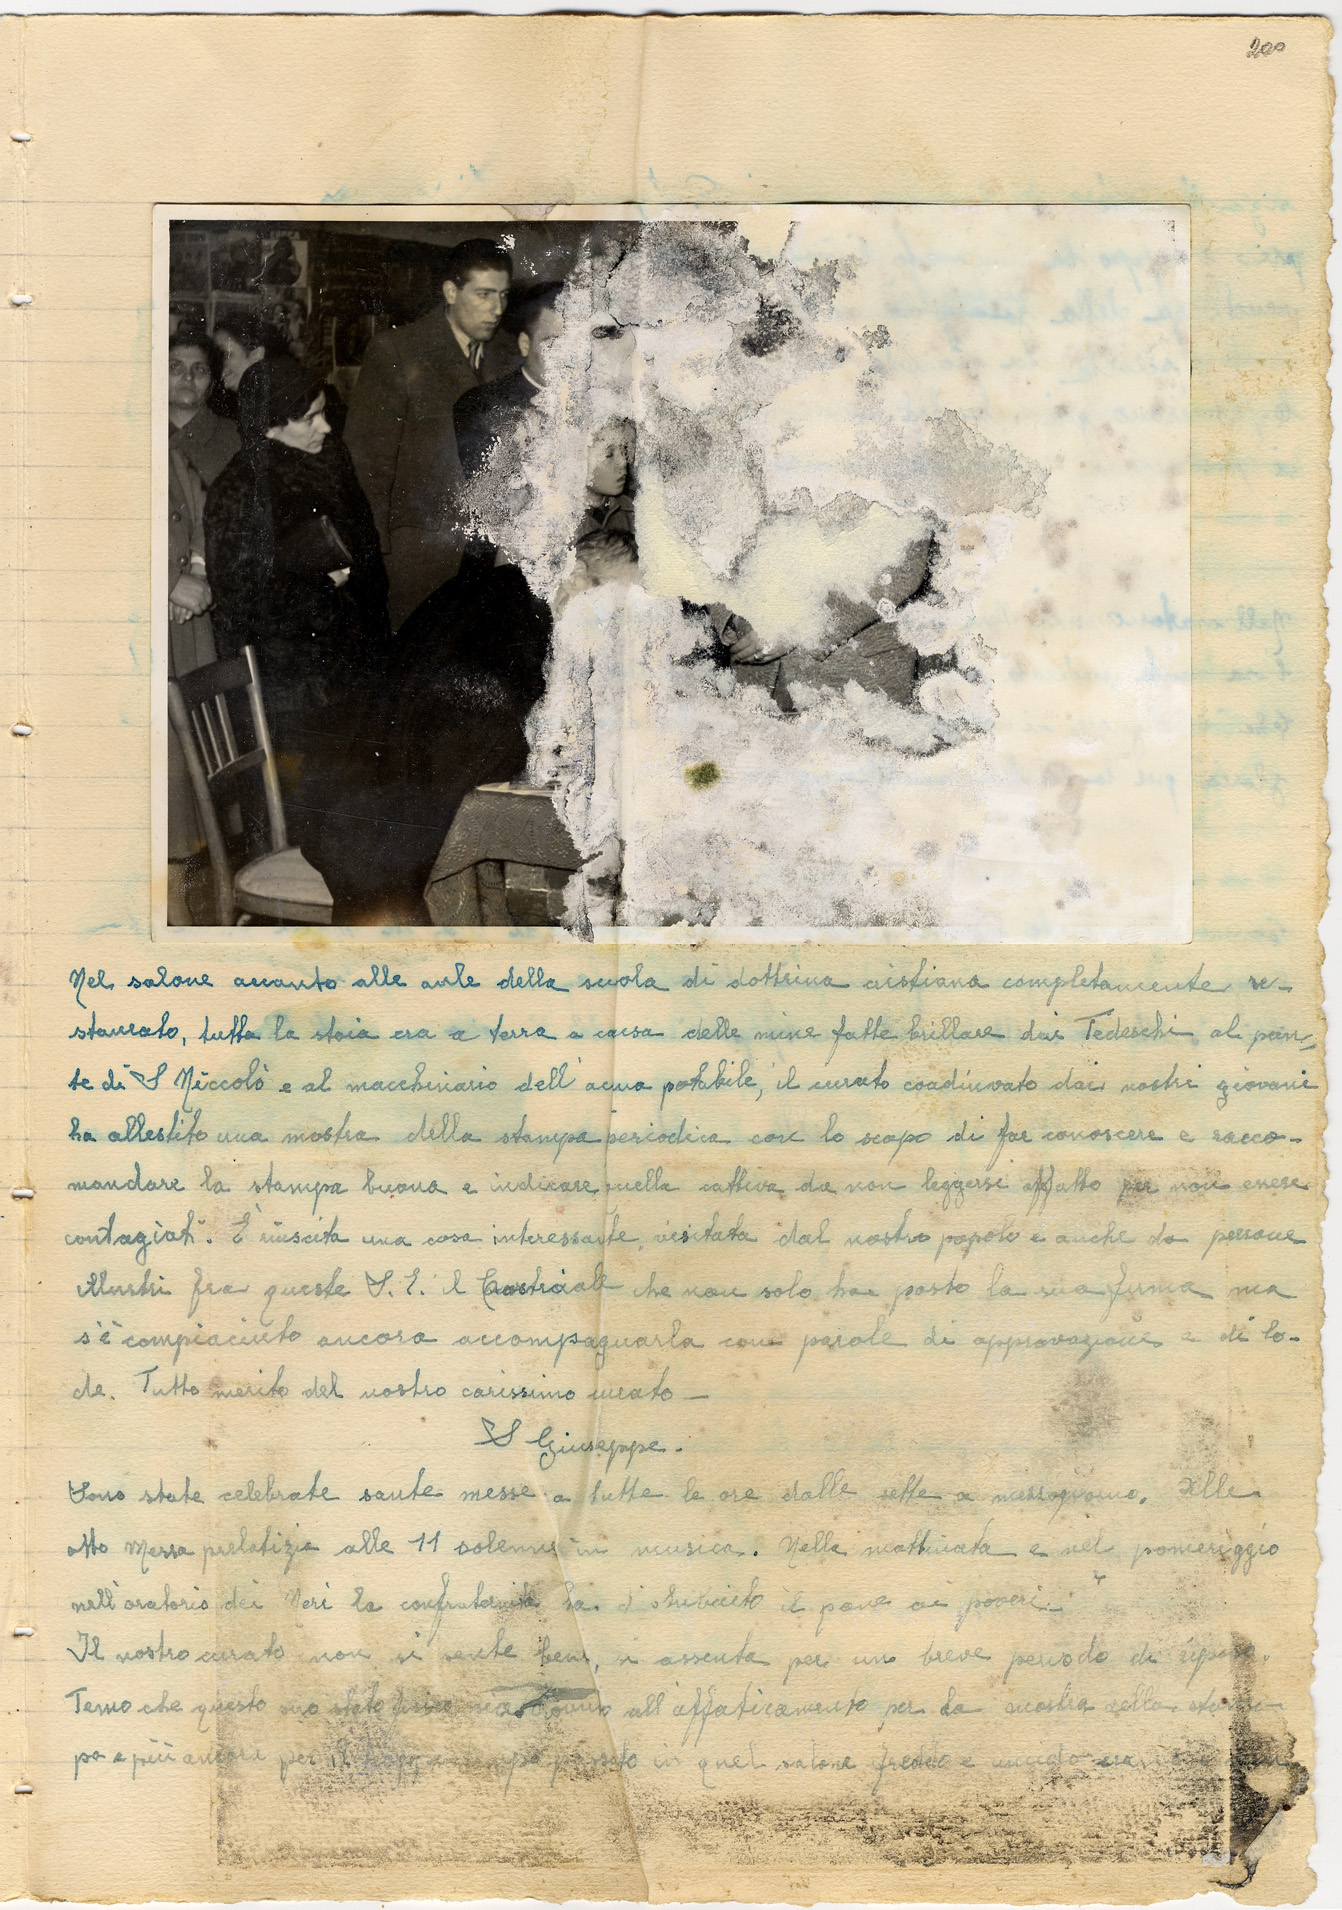 200
Nel salone accanto alle aule della scuola di dottrina cristiana completamente re-
staurato, tutta la stoia era a terra a causa delle mine fatte brillare dai Tedeschi al pon-
te di S Niccolò e al macchinario dell'acqua potabile, il curato coadiuvato dai nostri giovani
ha allestito una mostra della stampa periodica con lo scopo di far conoscere e racco-
mandare la stampa buona e indicare quella cattiva da non leggersi affatto per non essere
contagiati. È riuscita una cosa interessante, visitata dal nostro popolo e anche da persone
illustri fra queste S. E. il che non solo ha posto la sua firma ma
s'è compiaciuto ancora accompagnarla con parole di approvazione e di lo-
de. Tutto merito del nostro carissimo curato —
S Giuseppe.
Sono state celebrate sante messe a tutte le ore dalle sette a mezzogiorno. Alle
otto Messa prelatizia alle 11 solenne in musica. Nella mattinata e nel pomeriggio
nell'oratorio dei Neri la confraternita ha distribuito il pane ai poveri.
Il nostro curato non si sente bene, si assenta per un breve periodo di riposo.
Temo che questo suo stato fisico sia dovuto all'affaticamento per la mostra della stam-
pa e più ancora per il tempo passato in quel salone freddo e umido